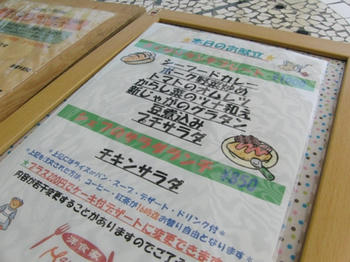 本日のお献立
シーフードカレー
ポーク野菜炒め
トマトのオムレツ
からし菜のツナ和え
新じゃがのグラタン
豆煮込み
プチサラダ
¥850
チキンサラダ
*上記には ライス or パン・スープ・デザート・ドリンク付*
*上記を注文された方は、コーヒー・紅茶が1時間お替り自由となります*
*プラス200円でケーキ付デザートに変更でき
内容が若干変更することがありますのでご了